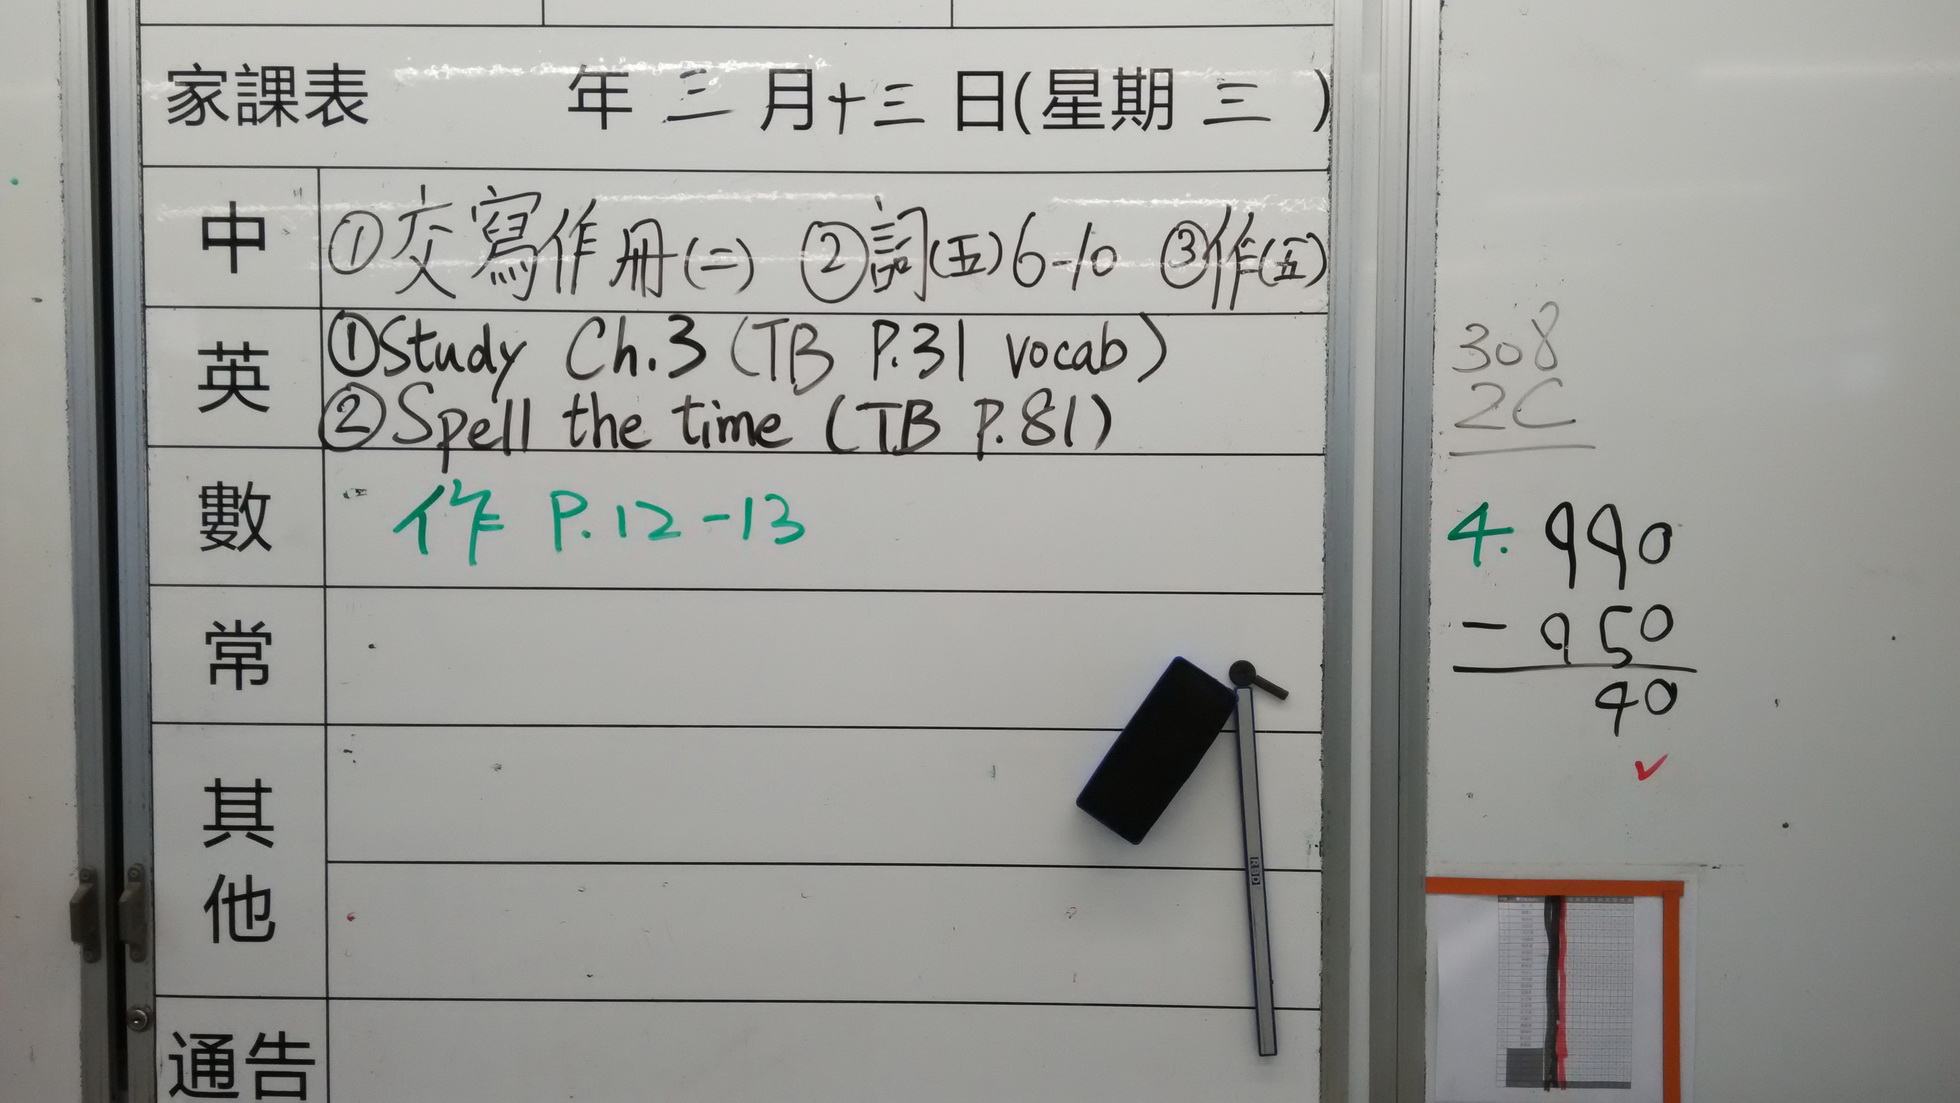 家課表 年 三 月 十三 日(星期 三 )
中 ①交寫作册(二) ②詞(五)6-10 ③作(五)
英 ①Study Ch.3 (TB P.31 vocab)
②Spell the time (TB P.81)
數 作 P.12-13
常
其他
通告
308
2C
4. 990
- 950
40